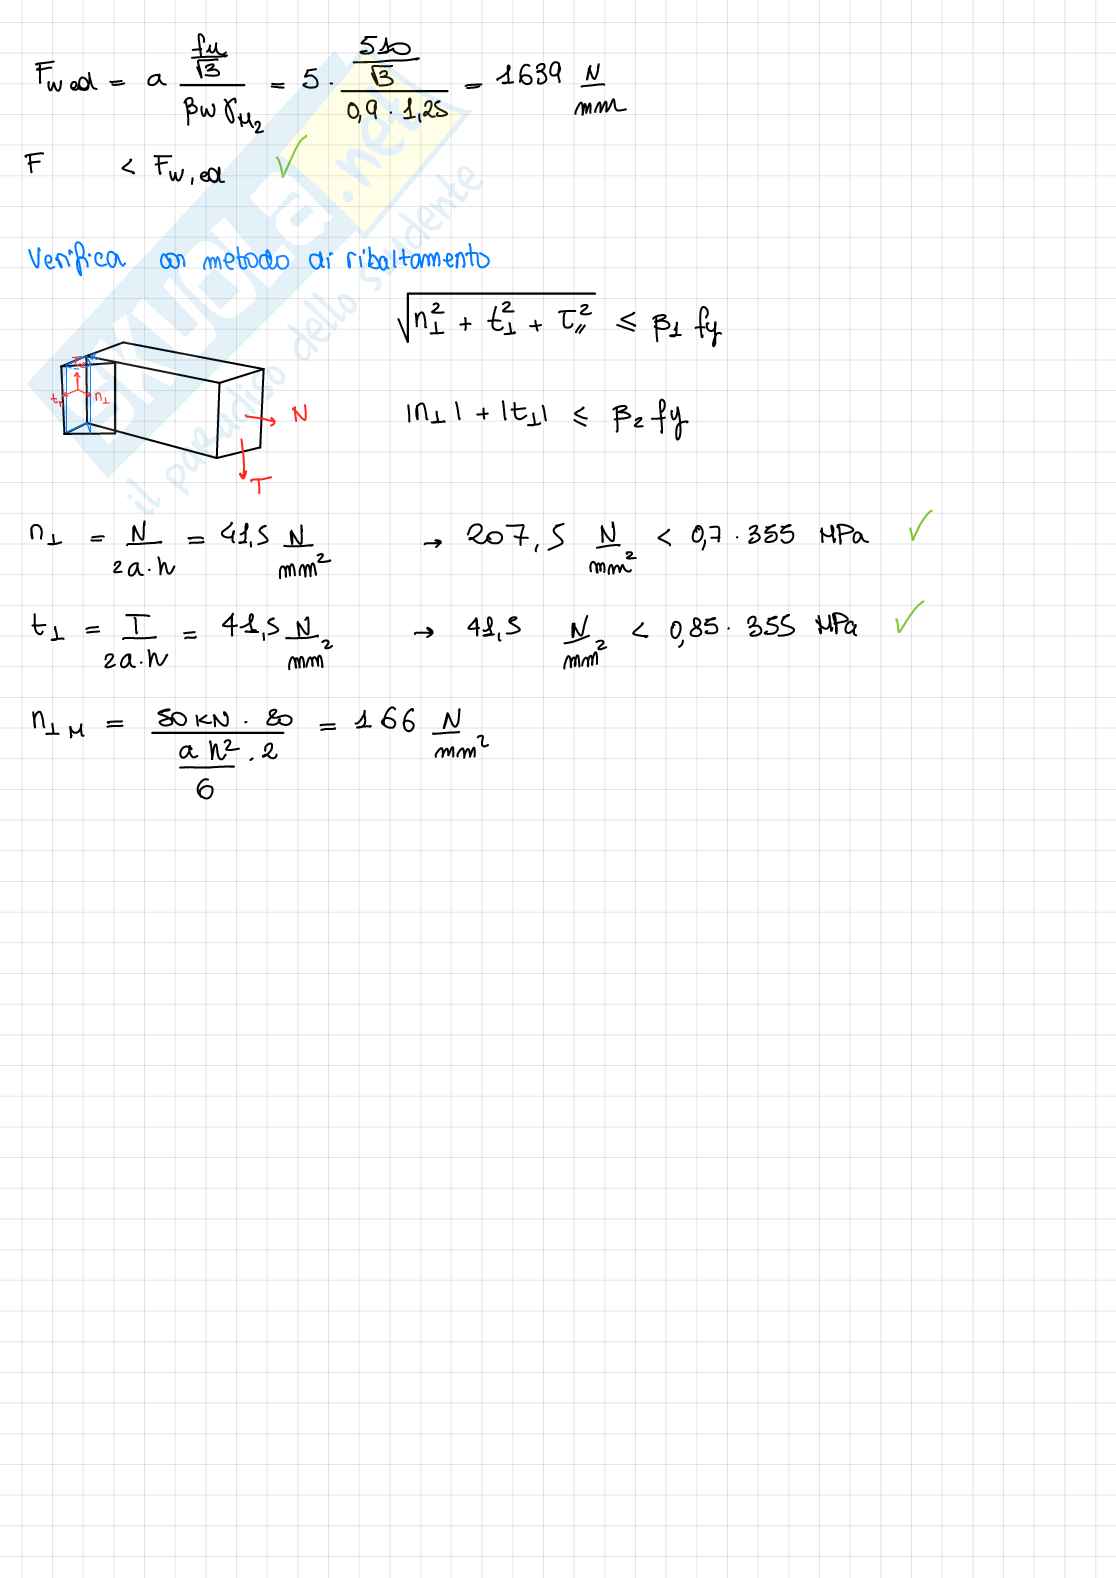 F_{w ed} = a \frac{\frac{fu}{\sqrt{3}}}{βw γ_{M2}} = 5 · \frac{\frac{510}{\sqrt{3}}}{0,9 · 1,25} = 1639 \frac{N}{mm}
F < F_{w,ed} ✓
Verifica con metodo di ribaltamento
\sqrt{n_⊥^2 + t_⊥^2 + τ_{//}^2} ⩽ β_1 fy
|n_⊥| + |t_⊥| ⩽ β_2 fy
n_⊥
N
T
n_⊥ = \frac{N}{2a·h} = 41,5 \frac{N}{mm^2} → 207,5 \frac{N}{mm^2} < 0,7 · 355 MPa ✓
t_⊥ = \frac{T}{2a·h} = 41,5 \frac{N}{mm^2} → 41,5 \frac{N}{mm^2} < 0,85 · 355 MPa ✓
n_{⊥M} = \frac{50KN · 80}{\frac{a h^2}{6} · 2} = 166 \frac{N}{mm^2}
skuola.net
il paradiso dello studente